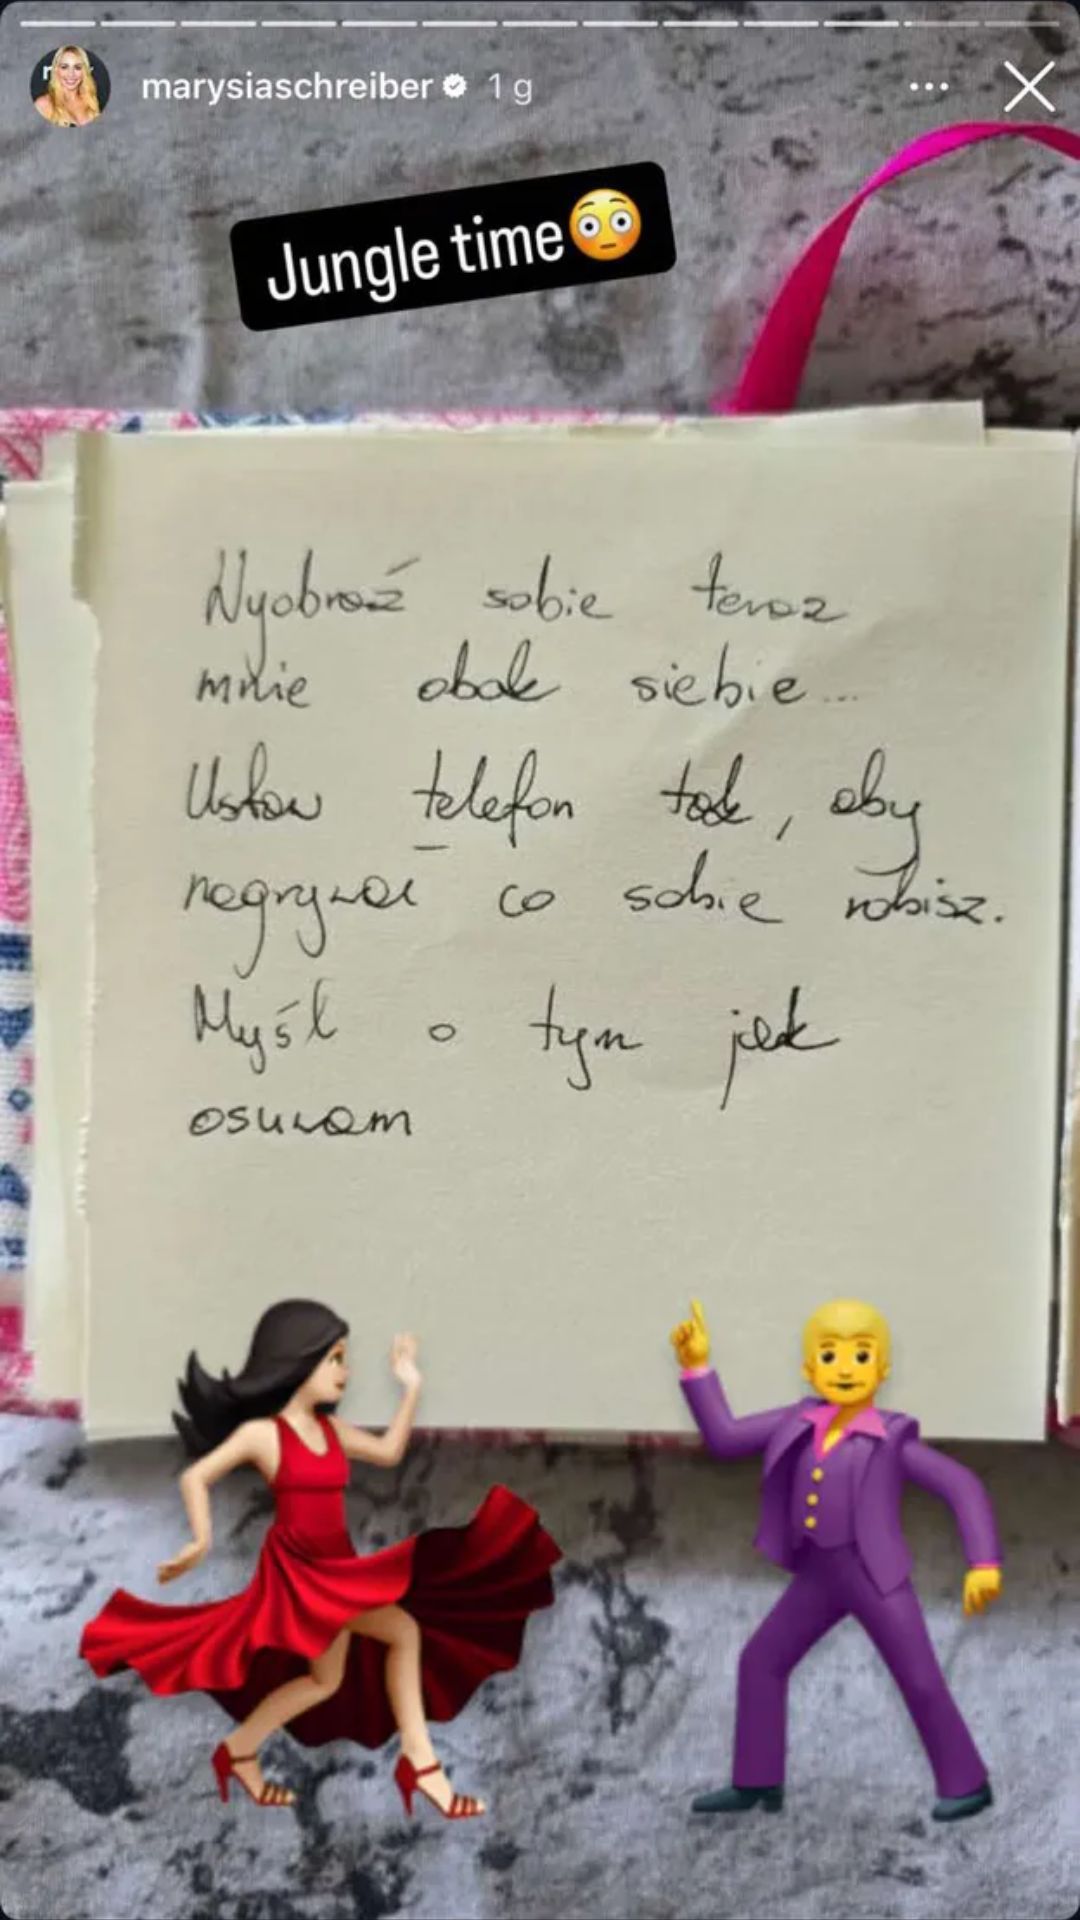 marysiaschreiber 1 g
Jungle time😳
Wyobraź sobie teraz
mnie obok siebie...
Ustaw telefon tak, aby
nagrywał co sobie robisz.
Myśl o tym jak
osuwam